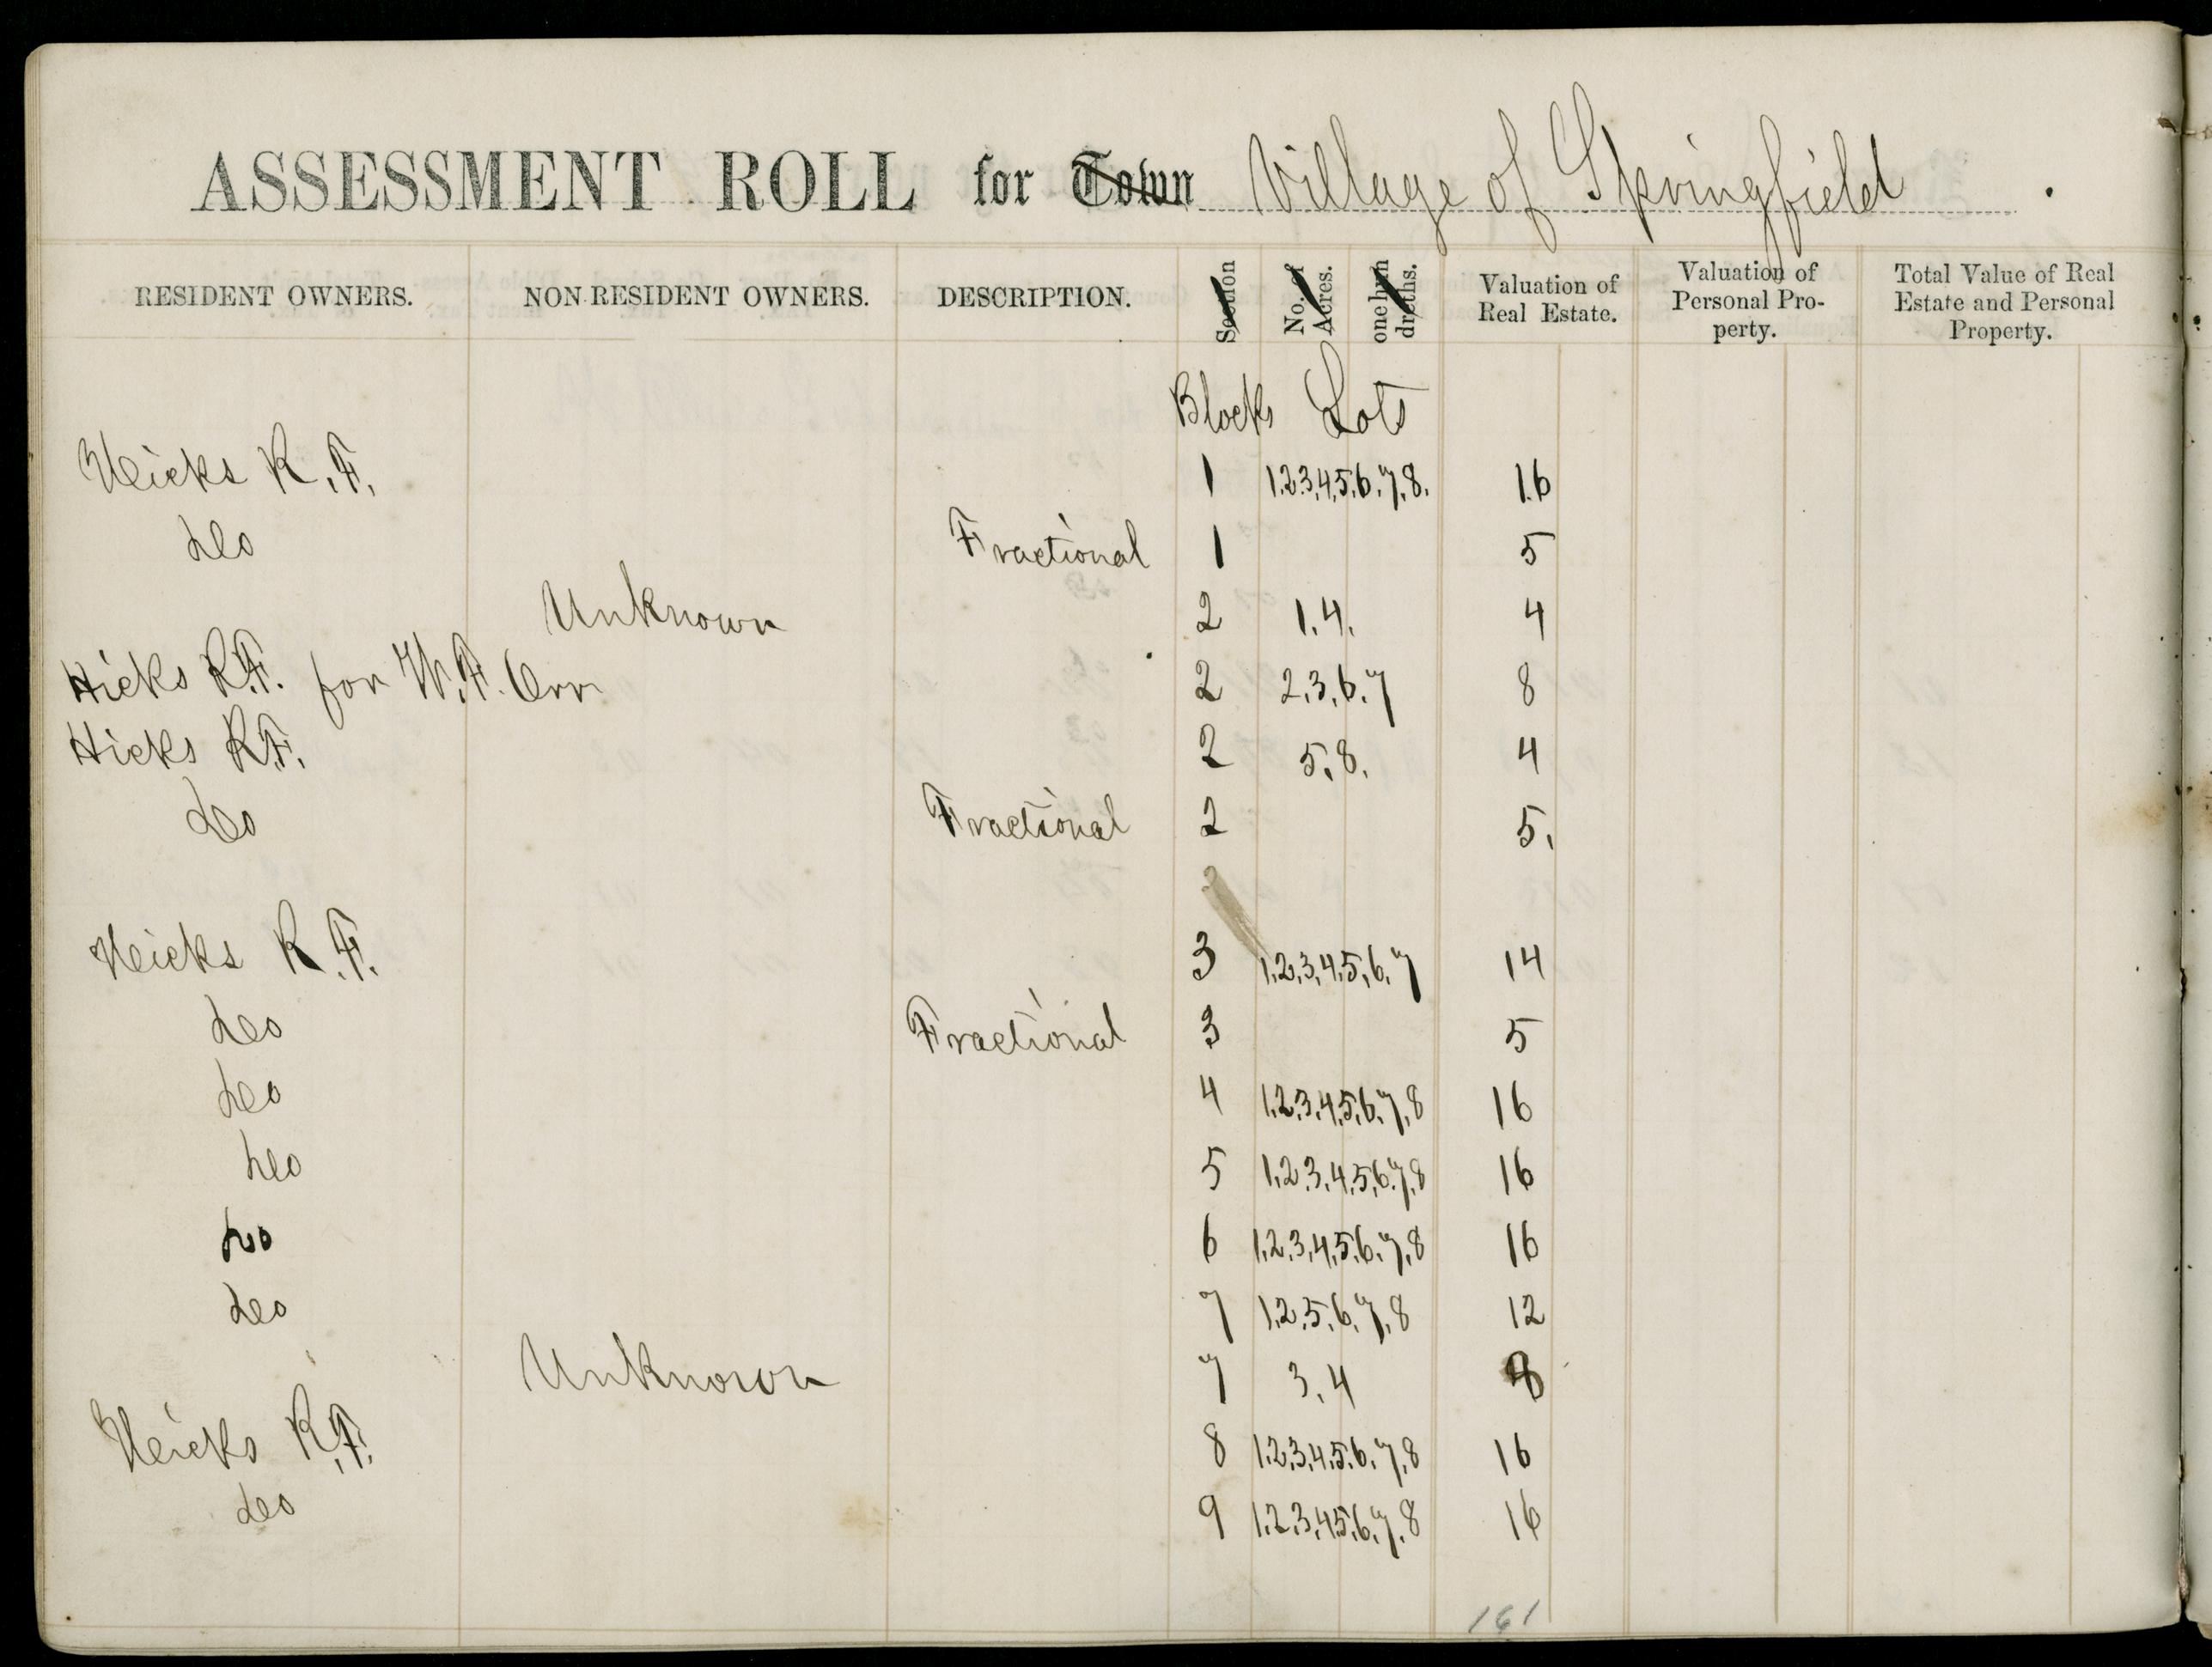 ASSESSMENT ROLL for Town Village of Springfield.
RESIDENT OWNERS. NON-RESIDENT OWNERS. DESCRIPTION. Section No. of Acres. one hundreths. Valuation of Real Estate. Valuation of Personal Property. Total Value of Real Estate and Personal Property.
Blocks Lots
Hicks R.F. 1 1.2.3,4,5.6.7.8. 16
do Fractional 1 5
Unknown 2 1.4. 4
Hicks R.F. for W.F. Orr 2 2.3,6.7 8
Hicks R.F. 2 5.8. 4
do Fractional 2 5.
Hicks R.F. 3 1,2,3,4,5,6,7 14
do Fractional 3 5
do 4 1,2,3,4,5,6,7,8 16
do 5 1,2,3,4,5,6,7,8 16
do 6 1,2,3,4,5,6,7,8 16
do 7 1,2,5,6,7,8 12
Unknown 7 3,4 8
Hicks R.F. 8 1,2,3,4,5,6,7,8 16
do 9 1,2,3,4,5,6,7,8 16
161